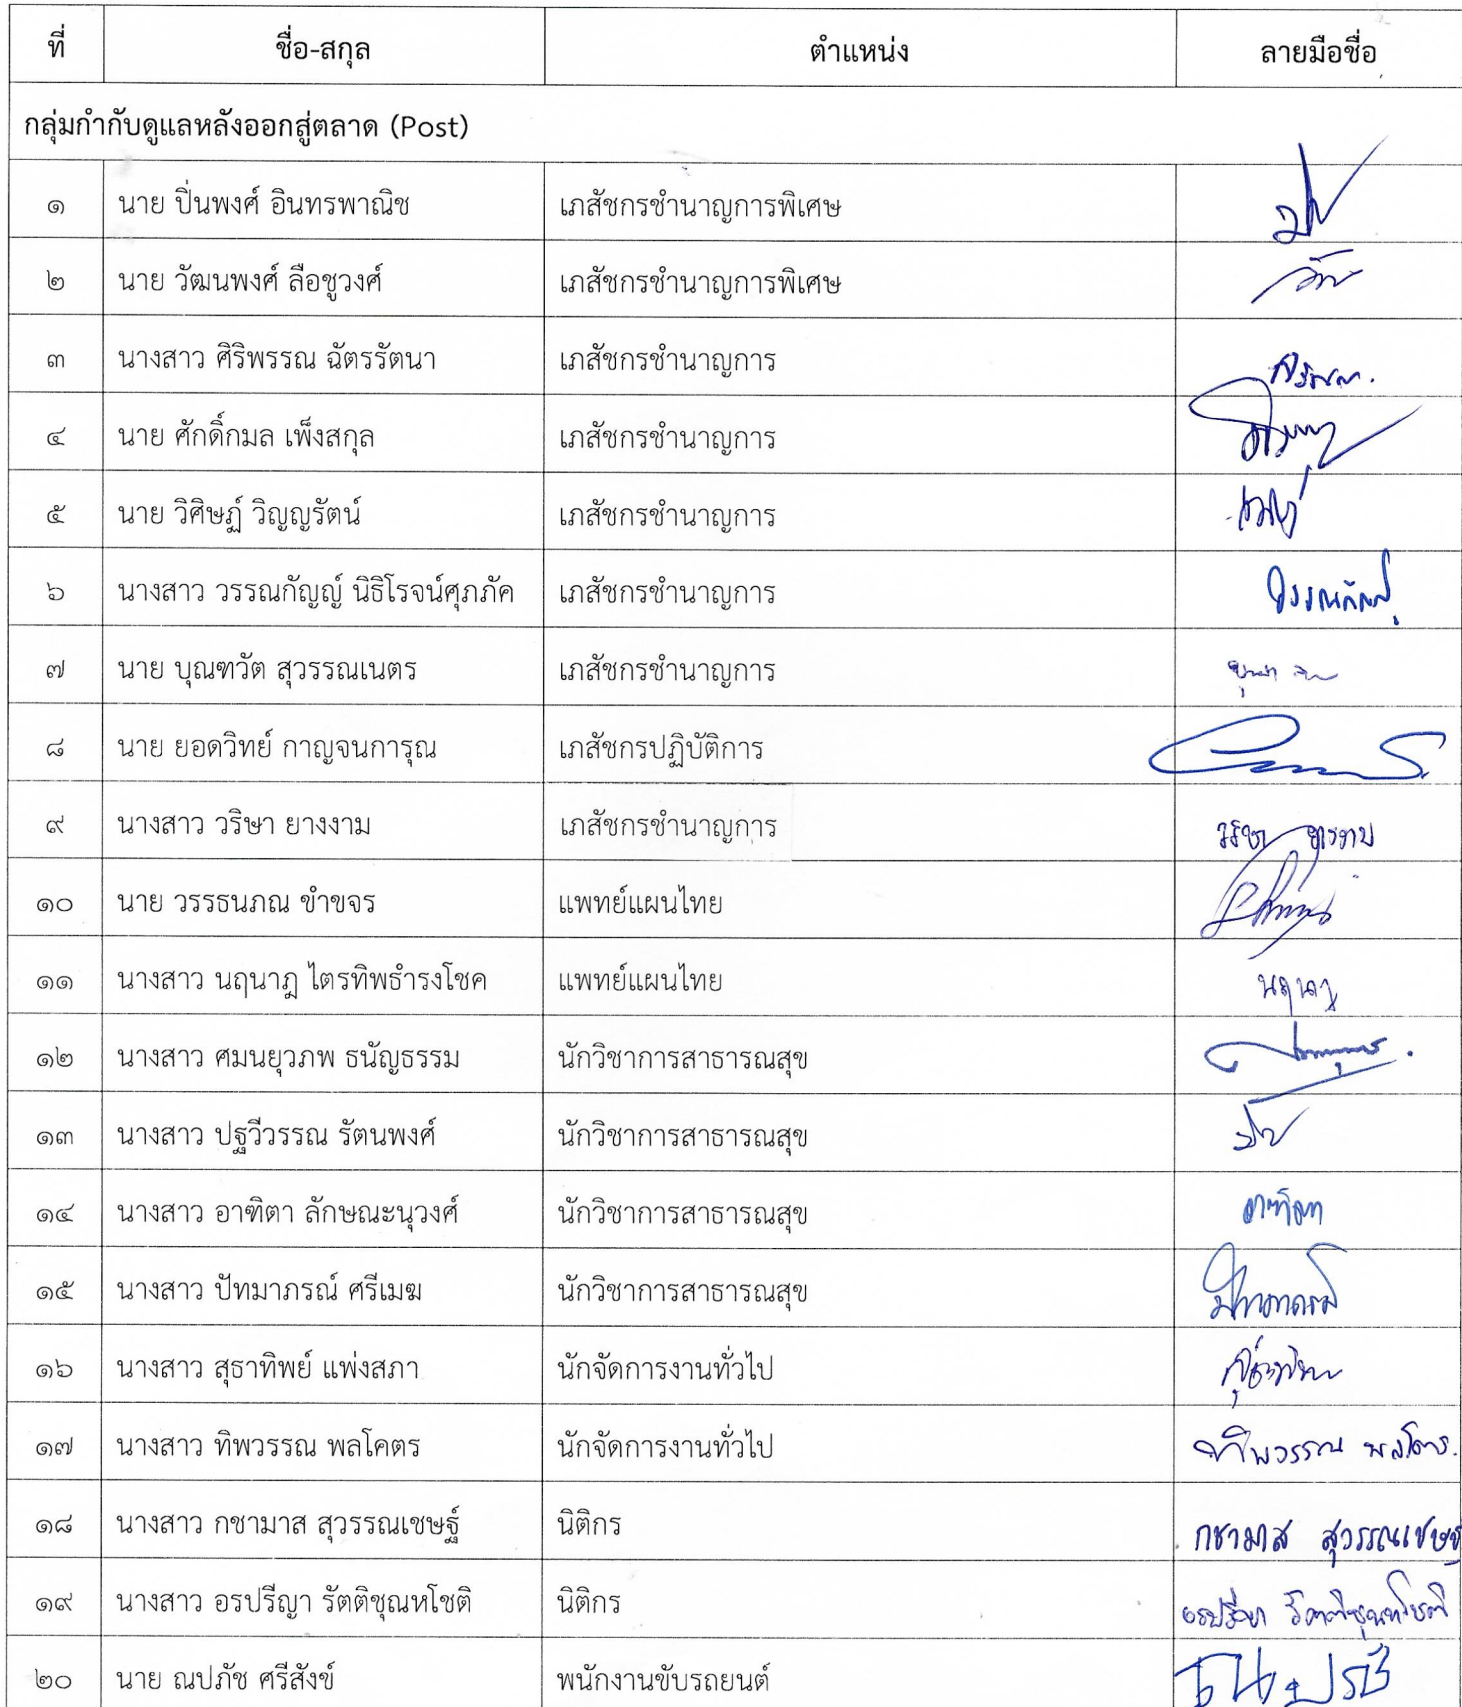 ที่ ชื่อ-สกุล ตำแหน่ง ลายมือชื่อ
กลุ่มกำกับดูแลหลังออกสู่ตลาด (Post)
๑ นาย ปิ่นพงศ์ อินทรพาณิช เภสัชกรชำนาญการพิเศษ
๒ นาย วัฒนพงศ์ ลือชูวงศ์ เภสัชกรชำนาญการพิเศษ
๓ นางสาว ศิริพรรณ ฉัตรรัตนา เภสัชกรชำนาญการ
๔ นาย ศักดิ์กมล เพ็งสกุล เภสัชกรชำนาญการ
๕ นาย วิศิษฏ์ วิญญรัตน์ เภสัชกรชำนาญการ
๖ นางสาว วรรณกัญญ์ นิธิโรจน์ศุภภัค เภสัชกรชำนาญการ วรรณกัญญ์
๗ นาย บุณฑวัต สุวรรณเนตร เภสัชกรชำนาญการ
๘ นาย ยอดวิทย์ กาญจนการุณ เภสัชกรปฏิบัติการ
๙ นางสาว วริษา ยางงาม เภสัชกรชำนาญการ วริษา ยางงาม
๑๐ นาย วรรธนภณ ขำขจร แพทย์แผนไทย
๑๑ นางสาว นฤนาฎ ไตรทิพธำรงโชค แพทย์แผนไทย นฤนาฎ
๑๒ นางสาว ศมนยุวภพ ธนัญธรรม นักวิชาการสาธารณสุข
๑๓ นางสาว ปฐวีวรรณ รัตนพงศ์ นักวิชาการสาธารณสุข
๑๔ นางสาว อาฑิตา ลักษณะนุวงศ์ นักวิชาการสาธารณสุข อาฑิตา
๑๕ นางสาว ปัทมาภรณ์ ศรีเมฆ นักวิชาการสาธารณสุข ปัทมาภรณ์
๑๖ นางสาว สุธาทิพย์ แพ่งสภา นักจัดการงานทั่วไป
๑๗ นางสาว ทิพวรรณ พลโคตร นักจัดการงานทั่วไป ทิพวรรณ พลโคตร.
๑๘ นางสาว กชามาส สุวรรณเชษฐ์ นิติกร กชามาส สุวรรณเชษฐ์
๑๙ นางสาว อรปรีญา รัตติชุณหโชติ นิติกร อรปรีญา รัตติชุณหโชติ
๒๐ นาย ณปภัช ศรีสังข์ พนักงานขับรถยนต์